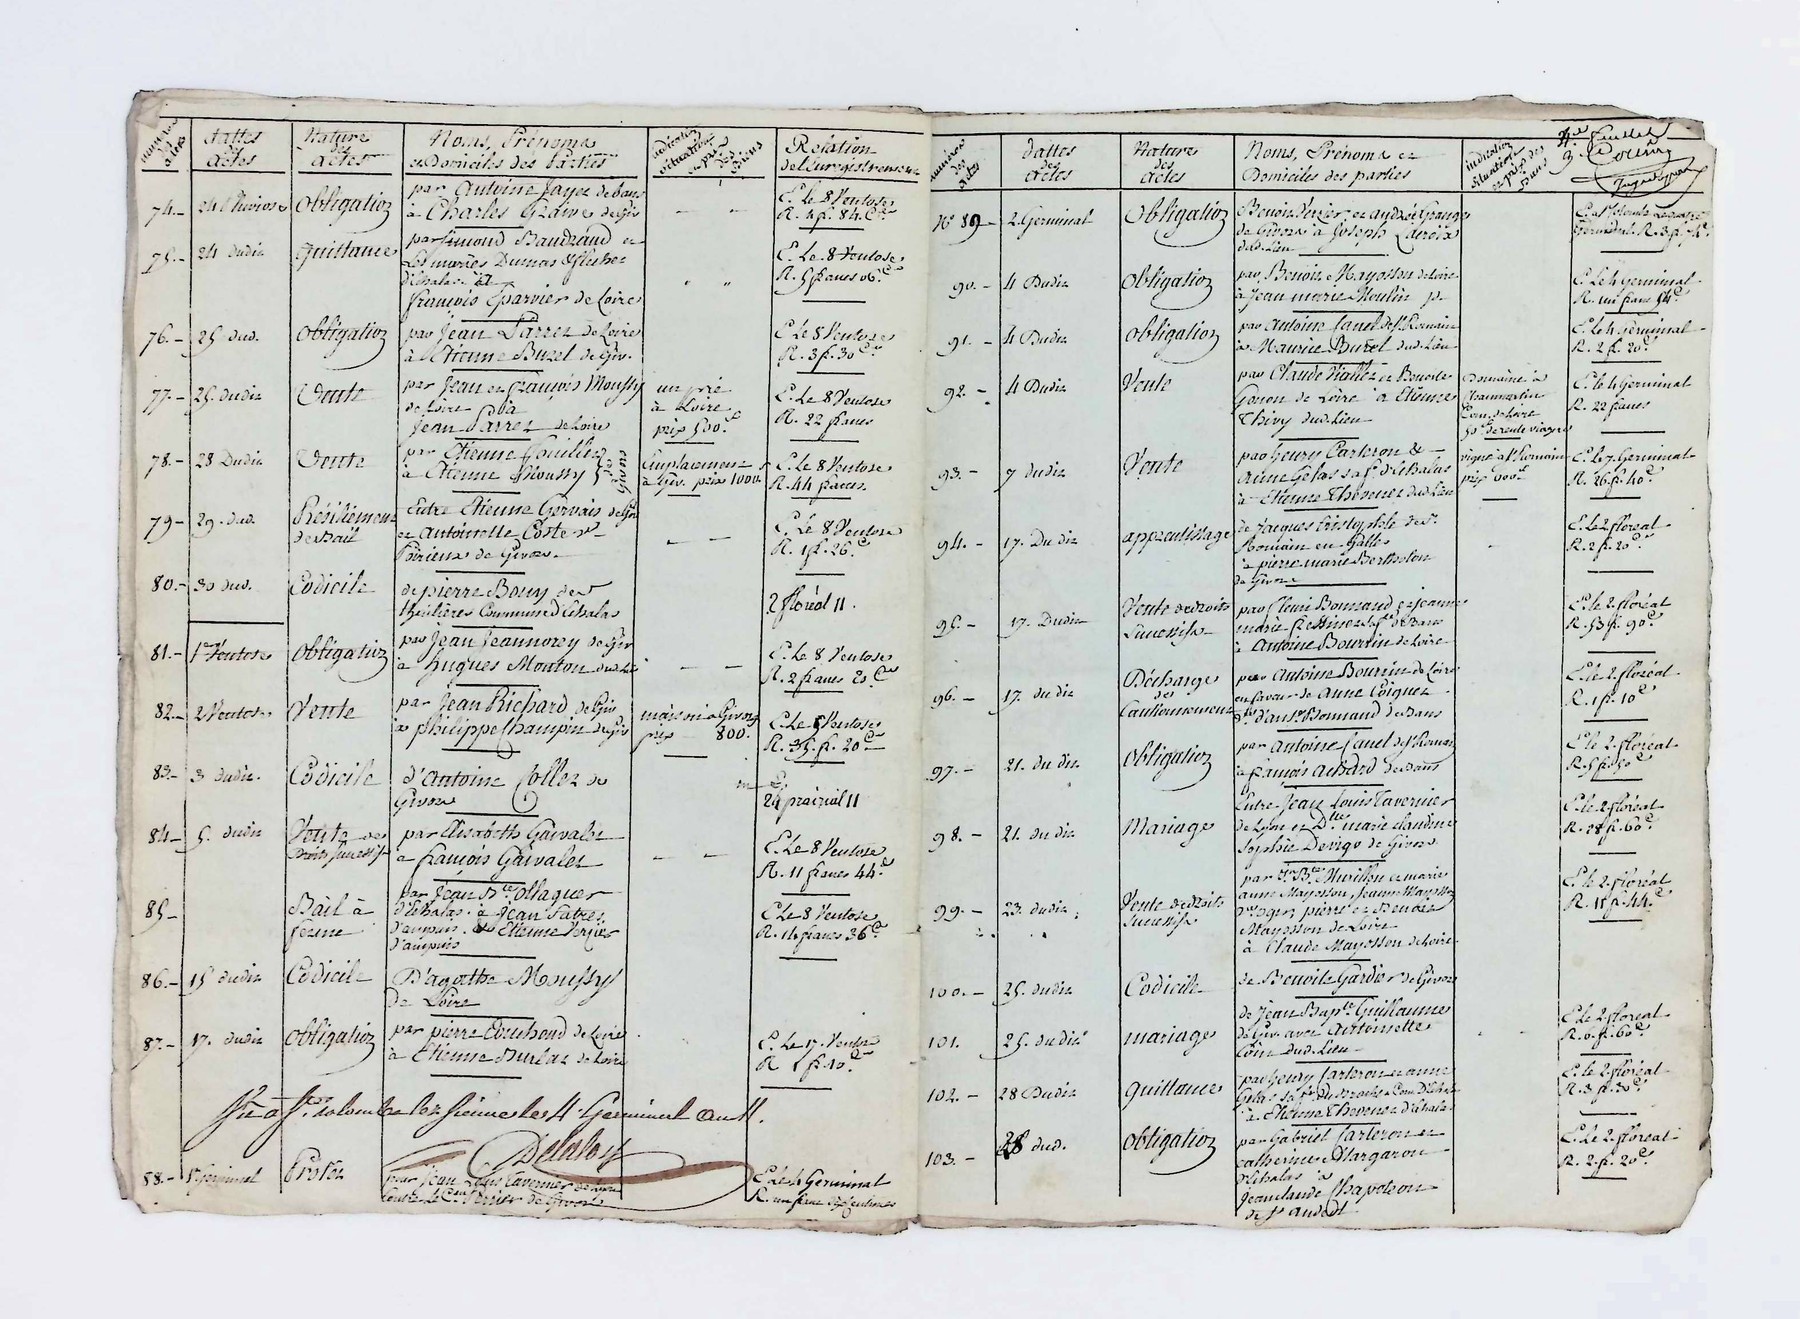 numéros
des
actes
dattes
des
actes
Nature
des
actes
Noms, Prénoms
et Domiciles des Parties
indication
situation
et prix
des
Biens
Relation
de l'enregistrement
74.- 24 Pluviose obligation
par Antoine Jayet de
à Charles Graive de Giv
E. le 8 Ventose
R. 4 f. 84 c
75.- 24 dudit quittance
par Simond Baudrand et
Les mariés Dumas &
d'Echalas à
françois Eparvier de Loire
E. Le 8 Ventose
R. 5 francs 06 c
76.- 25 dud. obligation
par Jean Parret de Loire
à Etienne Buzel de Giv.
E. Le 8 Ventose
R. 3 f. 30 c
77.- 25. dudit Vente
par Jean et françois Moussy
de Loire à
Jean Parret de Loire
un pré
à Loire
prix 500. f
E. Le 8 Ventose
R. 22 francs
78.- 28 Dudit Vente
par Etienne
à Etienne Moussy
de Givors
Emplacement
à Giv. prix 1000.
E. Le 8 Ventose
R. 44 francs.
79- 29. dud. Résiliement
de Bail
Entre Etienne Gervais de Giv
et Antoinette Coste Ve
de Givors.
E. Le 8 Ventose
R. 1 f. 26. c
80.- 30 dud. Codicile
de pierre Bouy des
Commune d'Echalas
2 floréal 11.
81.- 1er Ventose obligation
par Jean Jeannorey de Giv
à hugues Mouton dud. lieu
E. Le 8 Ventose
R. 2 francs 20 c
82.- 2 Ventose Vente
par Jean Richard de Giv
à philippe Champin de Giv
maison à Givors
prix 800.
E. Le 8 Ventose
R. 35. f. 20 c
83.- 3 dudit. Codicile
d'Antoine Collet de
Givors
24 prairial 11
84.- 5. dudit Vente de
Droits successifs
par Elisabeth Gaivalet
à françois Gaivalet
E. Le 8 Ventose
R. 11 francs 44. c
85.- Bail à
ferme
par Jean Bte
d'Echalas. à Jean
d'ampuis. & Etienne Verzier
d'ampuis
E. Le 8 Ventose
R. 14 francs 36 c
86.- 15 dudit Codicile
D'agathe Moussy
de Loire
87.- 17. dudit obligation
par pierre de Loire
à Etienne Burlat de Loire
E. Le 17. Ventose
R 1 f. 10. c
Vu à Ste Colombe les Vienne les 4 Germinal an 11.
Delaloy
88.- 1er Germinal Protêt
par Jean Louis Tavernier de Lyon
contre le Cen Verzier de Givors
E. le 4 Germinal
R. un franc centimes
4e feuillet
3e
numéros
des
actes
dattes
des
actes
Nature
des
actes
Noms, Prénoms et
Domiciles des parties
indication
situation
et prix des
Biens
No 89- 2. Germinal obligation
Benoit Verzier et andrée Grange
de Givors à Joseph Lacroix
dud. Lieu
E. à Ste Colombe Le quatre
Germinal. R. 3 f. 74 c
90.- 4 Dudit obligation
par Benoit Mayosson de Loire
à Jean marie Moulin
E. Le 4 Germinal
R. un franc 54 c
91.- 4 Dudit obligation
par Antoine Canel de St Romain
à Maurice Buzel dud. Lieu
E. Le 4 Germinal
R. 2 f. 20 c
92.- 4 Dudit Vente
par Claude Viallet et Benoite
Gonon de Loire à Etienne
Thivy dud. Lieu
Domaine à
Chanmartin
Com. de Loire
50 f de rente viagere
E. Le 4 Germinal
R. 22 francs
93.- 7 dudit Vente
par henry Carteron &
Anne Gelas sa fe d'Echalas
à Etienne Thevenet dud. Lieu
vigne à St Romain
prix 600 f
E. Le 7. Germinal
R. 26. f. 40 c
94.- 17. Dudit apprentissage
de Jacques Cristophle de St
Romain en Gallés
à pierre marie Bertholon
de Givors
E. Le 2 floréal
R. 2 f. 20 c
95.- 17. Dudit Vente de droits
Successifs
par fleuri Bonnand et jeanne
marie sa fe de Dans
à Antoine Bourrin de Loire
E. Le 2. floréal
R. 53 f. 90 c
96.- 17. dudit Décharge
de
Cautionnement
par Antoine Bourrin de Loire
en faveur de Anne Coignet
d'Anto Bonnand de Dans
E. Le 2 floréal
R. 1 f. 10 c
97.- 21. dudit obligation
par Antoine Canel de St Romain
à françois Achard de Dans
E. Le 2. floréal
R. 5 f. 50 c
98.- 21. dudit Mariage
Entre Jean Louis Tavernier
de Lyon et Dlle marie claudine
Sophie Devigo de Givors
E. Le 2 floréal
R. 28 f. 60 c
99.- 23. dudit Vente de droits
Successifs
par Jn Bte Murillon et marie
anne Mayosson, Jeanne Mayosson
pierre et Benoit
Mayosson de Loire
à Claude Mayosson de Loire
E. Le 2. floréal
R. 11 f. 44. c
100.- 25. dudit Codicile
de Benoite Gardier de Givors
101. 25. dudit mariage
de Jean Bapte Guillaume
de Giv. avec Antoinette
dud. Lieu
E. Le 2. floréal
R. 6. f. 60 c
102.- 28 Dudit quittance
par henry Carteron et anne
Gelas sa fe Com. d'Echalas
à Etienne Thevenet d'Echalas
E. Le 2. floréal
R. 3 f. 30 c
103.- 28 dud. obligation
par Gabriel Carteron et
catherine Margaron
d'Echalas à
Jeanclaude Chapoteon
de St andéol
E. Le 2. floréal
R. 2. f. 20. c